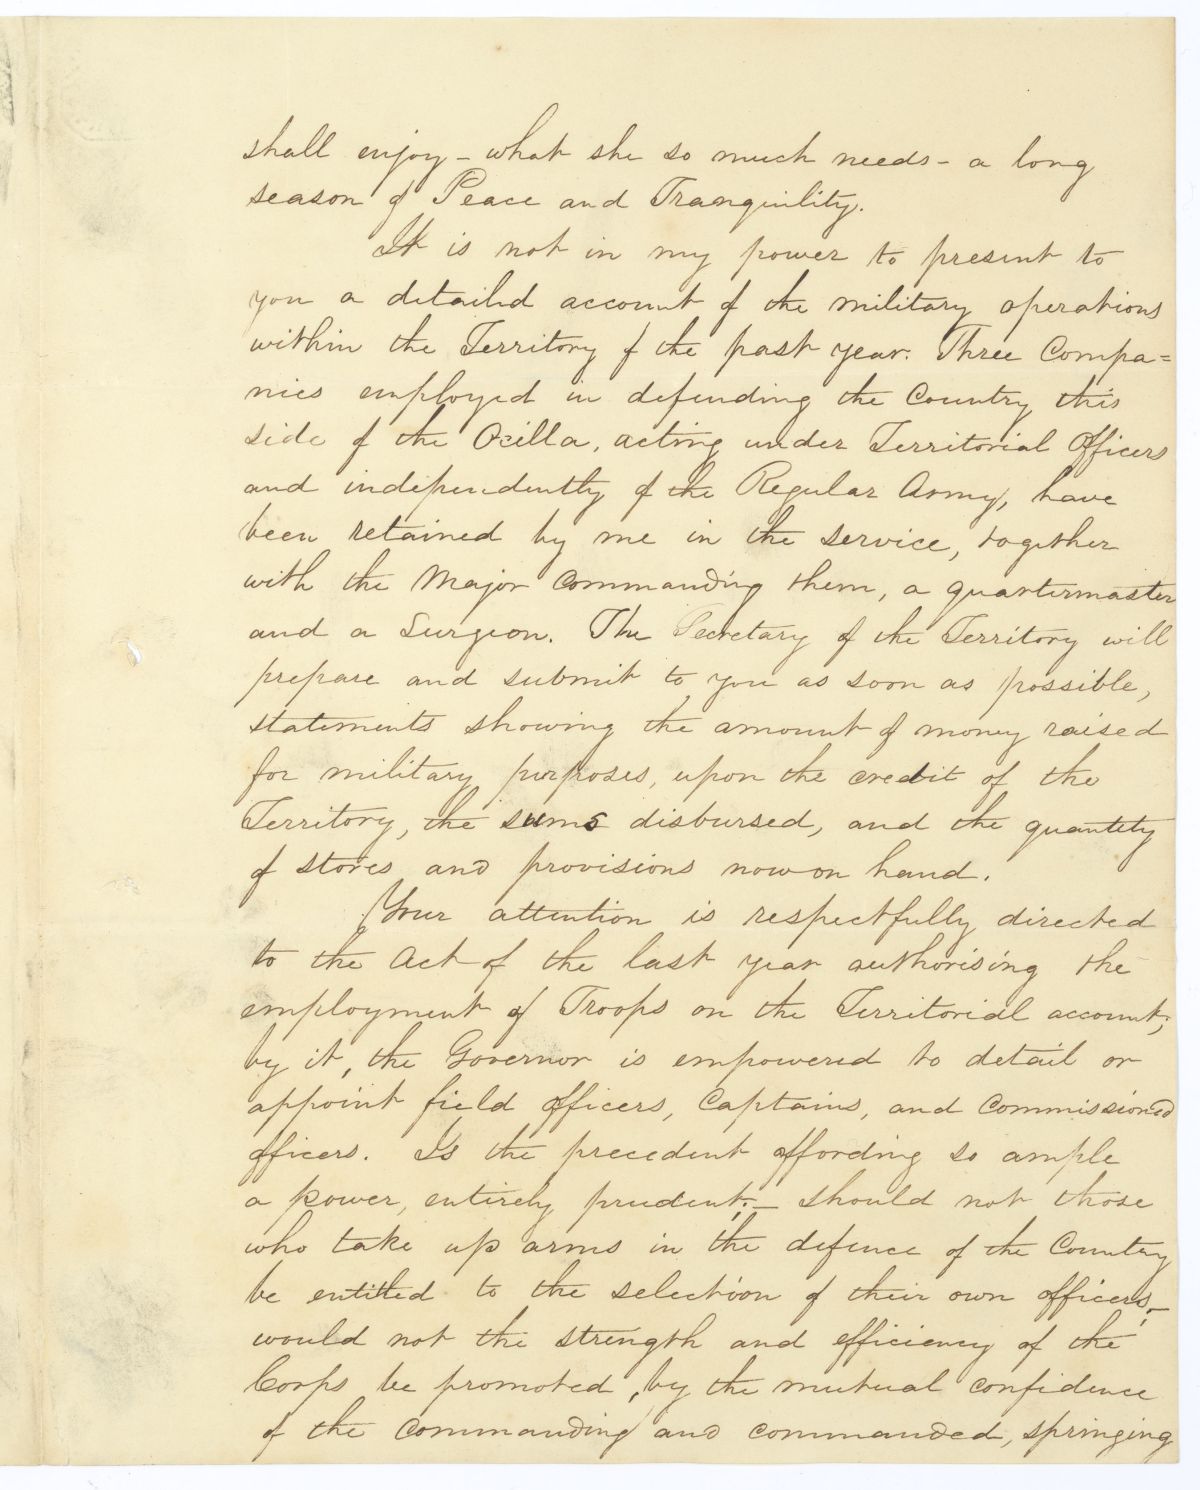 shall enjoy – what she so much needs – a long
season of Peace and Tranquility.
It is not in my power to present to
you a detailed account of the military operations
within the Territory of the past year. Three Compa=
nies employed in defending the Country this
side of the Ocilla, acting under Territorial Officers
and independently of the Regular Army, have
been retained by me in the service, together
with the Major commanding them, a quartermaster
and a Surgeon. The Secretary of the Territory will
prepare and submit to you as soon as possible,
statements showing the amount of money raised
for military purposes, upon the credit of the
Territory, the sums disbursed, and the quantity
of stores and provisions now on hand.
Your attention is respectfully directed
to the Act of the last year authorising the
employment of Troops on the Territorial account;
by it, the Governor is empowered to detail or
appoint field officers, Captains, and Commissioned
officers. Is the precedent affording so ample
a power, entirely prudent; – should not those
who take up arms in the defence of the Country
be entitled to the selection of their own officers; –
would not the strength and efficiency of the
Corps be promoted, by the mutual confidence
of the commanding and commanded, springing